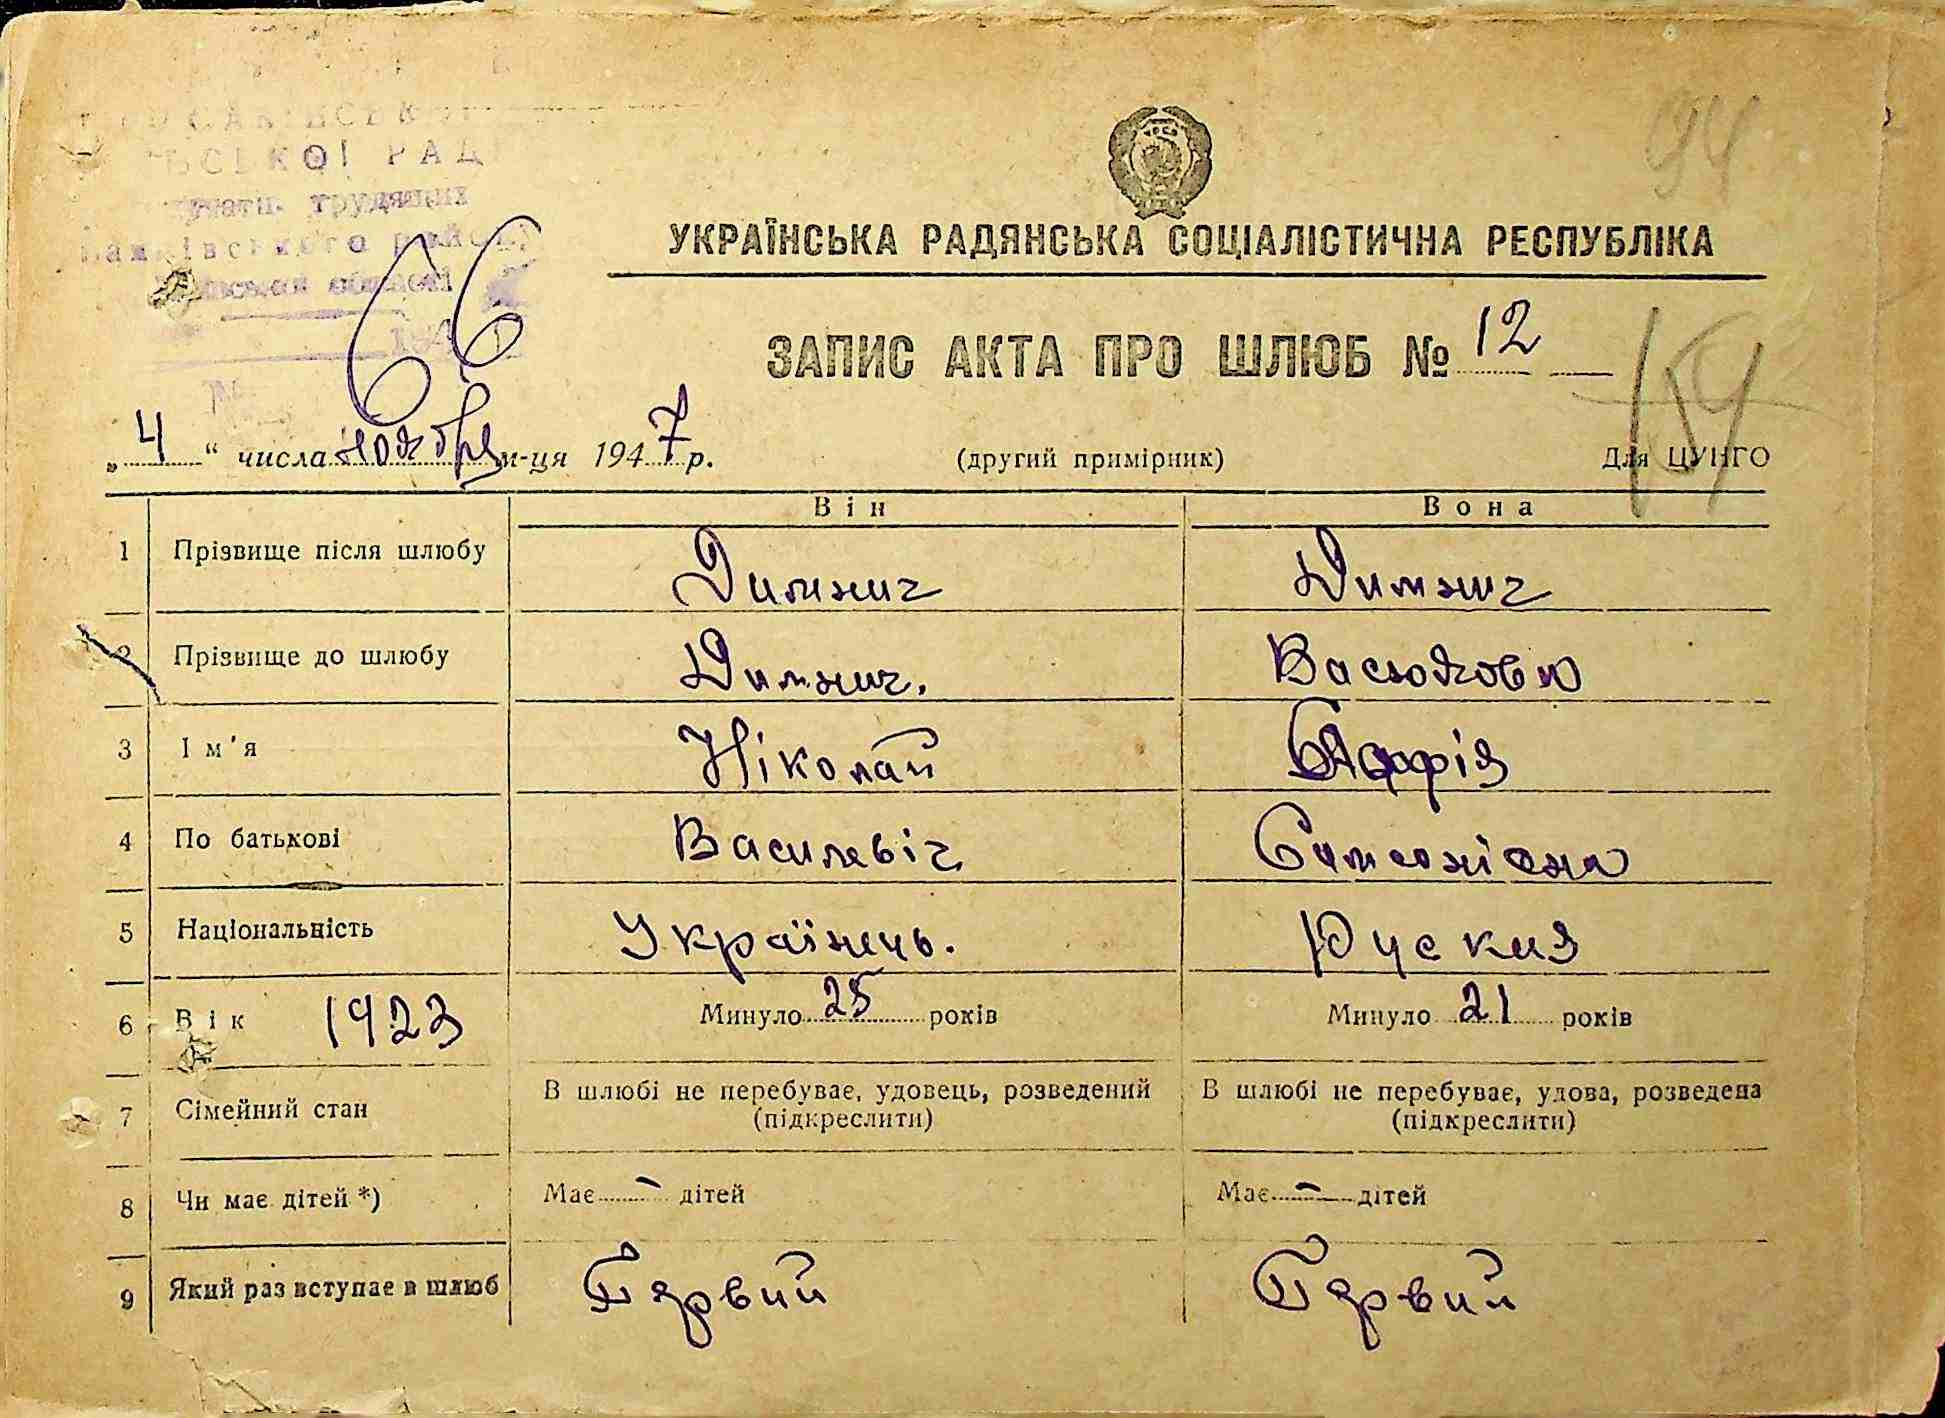 94
УКРАЇНСЬКА РАДЯНСЬКА СОЦІАЛІСТИЧНА РЕСПУБЛІКА
66
ЗАПИС АКТА ПРО ШЛЮБ № 12
154
„ 4 “ числа ноября м-ця 1947 р. (другий примірник) Для ЦУНГО
Він Вона
1 Прізвище після шлюбу Димнич Димнич
2 Прізвище до шлюбу Димнич.
3 Ім'я Ніколай
4 По батькові Василевіч
5 Національність Українець. Руския
6 Вік 1923 Минуло 25 років Минуло 21 років
7 Сімейний стан В шлюбі не перебуває, удовець, розведений В шлюбі не перебуває, удова, розведена
(підкреслити) (підкреслити)
8 Чи має дітей *) Має — дітей Має — дітей
9 Який раз вступає в шлюб Первий Первий